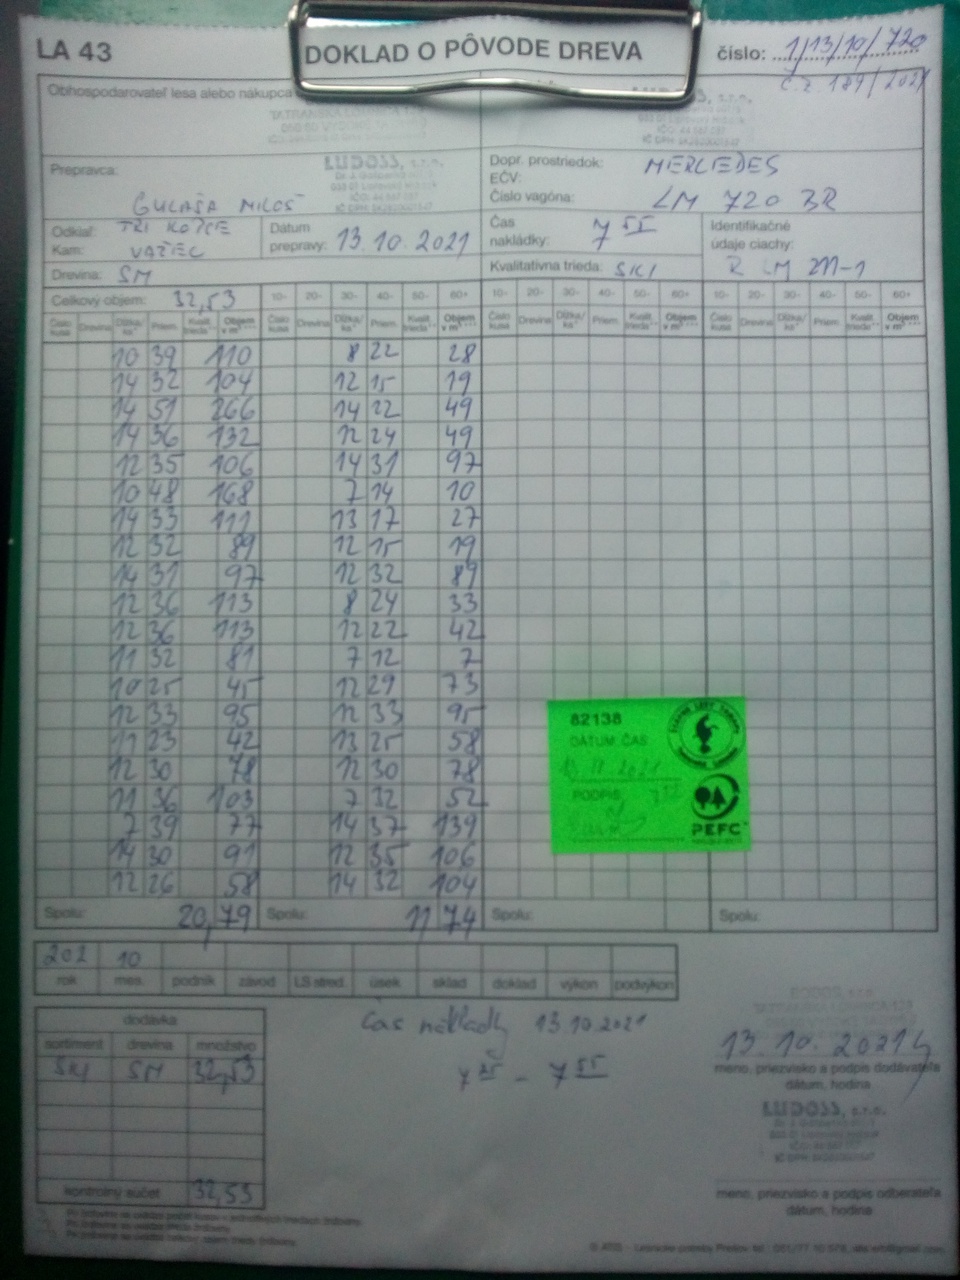 LA 43
DOKLAD O PÔVODE DREVA
číslo: 1/13/10/720
č.z. 189/2021
Obhospodarovateľ lesa alebo nákupca
LUDOSS, s.r.o.
Prepravca:
LUDOSS, s.r.o.
GULAŠA MILOŠ
Dopr. prostriedok: MERCEDES
EČV:
Číslo vagóna: LM 720 BR
Odkiaľ: TRI KOPCE
Kam: VAŽEC
Dátum prepravy: 13.10.2021
Čas nakládky: 7 55
Identifikačné údaje ciachy:
R LM 211-1
Drevina: SM
Kvalitatívna trieda: SKI
Celkový objem: 32,53
10- 20- 30- 40- 50- 60+ 10- 20- 30- 40- 50- 60+ 10- 20- 30- 40- 50- 60+
Číslo kusa Drevina Dĺžka/ks Priem. Kvalit. trieda Objem v m³ Číslo kusa Drevina Dĺžka/ks Priem. Kvalit. trieda Objem v m³ Číslo kusa Drevina Dĺžka/ks Priem. Kvalit. trieda Objem v m³ Číslo kusa Drevina Dĺžka/ks Priem. Kvalit. trieda Objem v m³
10 39 110 8 22 28
14 32 104 12 15 19
14 51 266 14 22 49
14 36 132 12 24 49
12 35 106 14 31 97
10 48 168 7 14 10
14 33 111 13 17 27
12 32 89 12 15 19
14 31 97 12 32 89
12 36 113 8 24 33
12 36 113 12 22 42
11 32 81 7 12 7
10 25 45 12 29 73
12 33 95 12 33 95
11 23 42 13 25 58
12 30 78 12 30 78
11 36 103 7 32 52
7 39 77 14 37 139
14 30 91 12 35 106
12 26 58 14 32 104
Spolu: 20,79 Spolu: 11 74 Spolu: Spolu:
82138
DÁTUM, ČAS
PODPIS
PEFC
202 10
rok mes. podnik závod LS stred. úsek sklad doklad výkon podvýkon
dodávka
sortiment drevina množstvo
SKI SM 32,53
kontrolný súčet 32,53
čas nakládky 13.10.2021
7 35 - 7 55
13.10.2021
meno, priezvisko a podpis dodávateľa
dátum, hodina
LUDOSS, s.r.o.
meno, priezvisko a podpis odberateľa
dátum, hodina